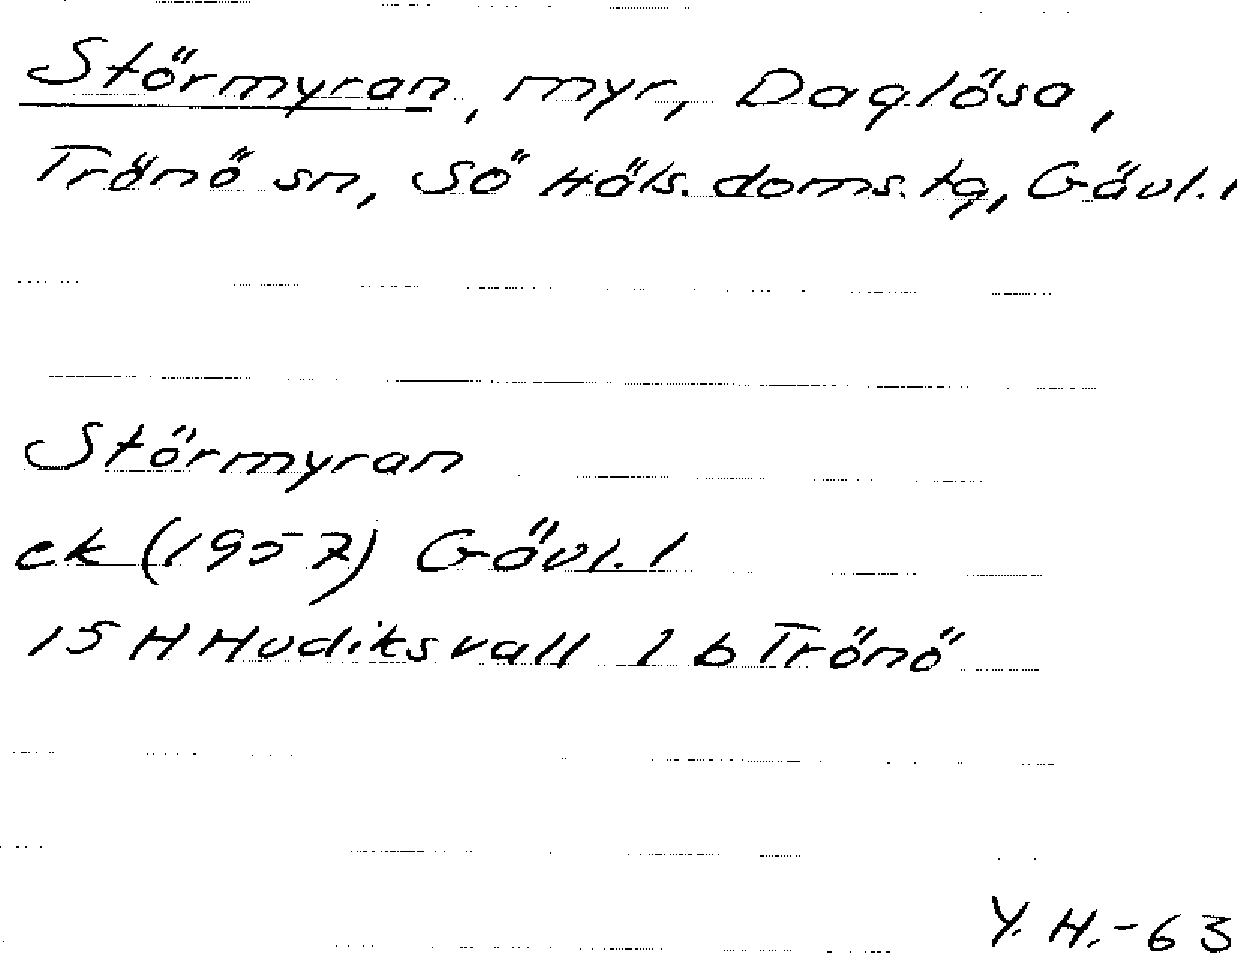 Störmyran, myr, Daglösa,
Trönö sn, Sö Häls. doms. tg, Gävl. l
Störmyran
ek (1957) Gävl. l
15 H Hudiksvall 1 b Trönö
Y. H. - 63